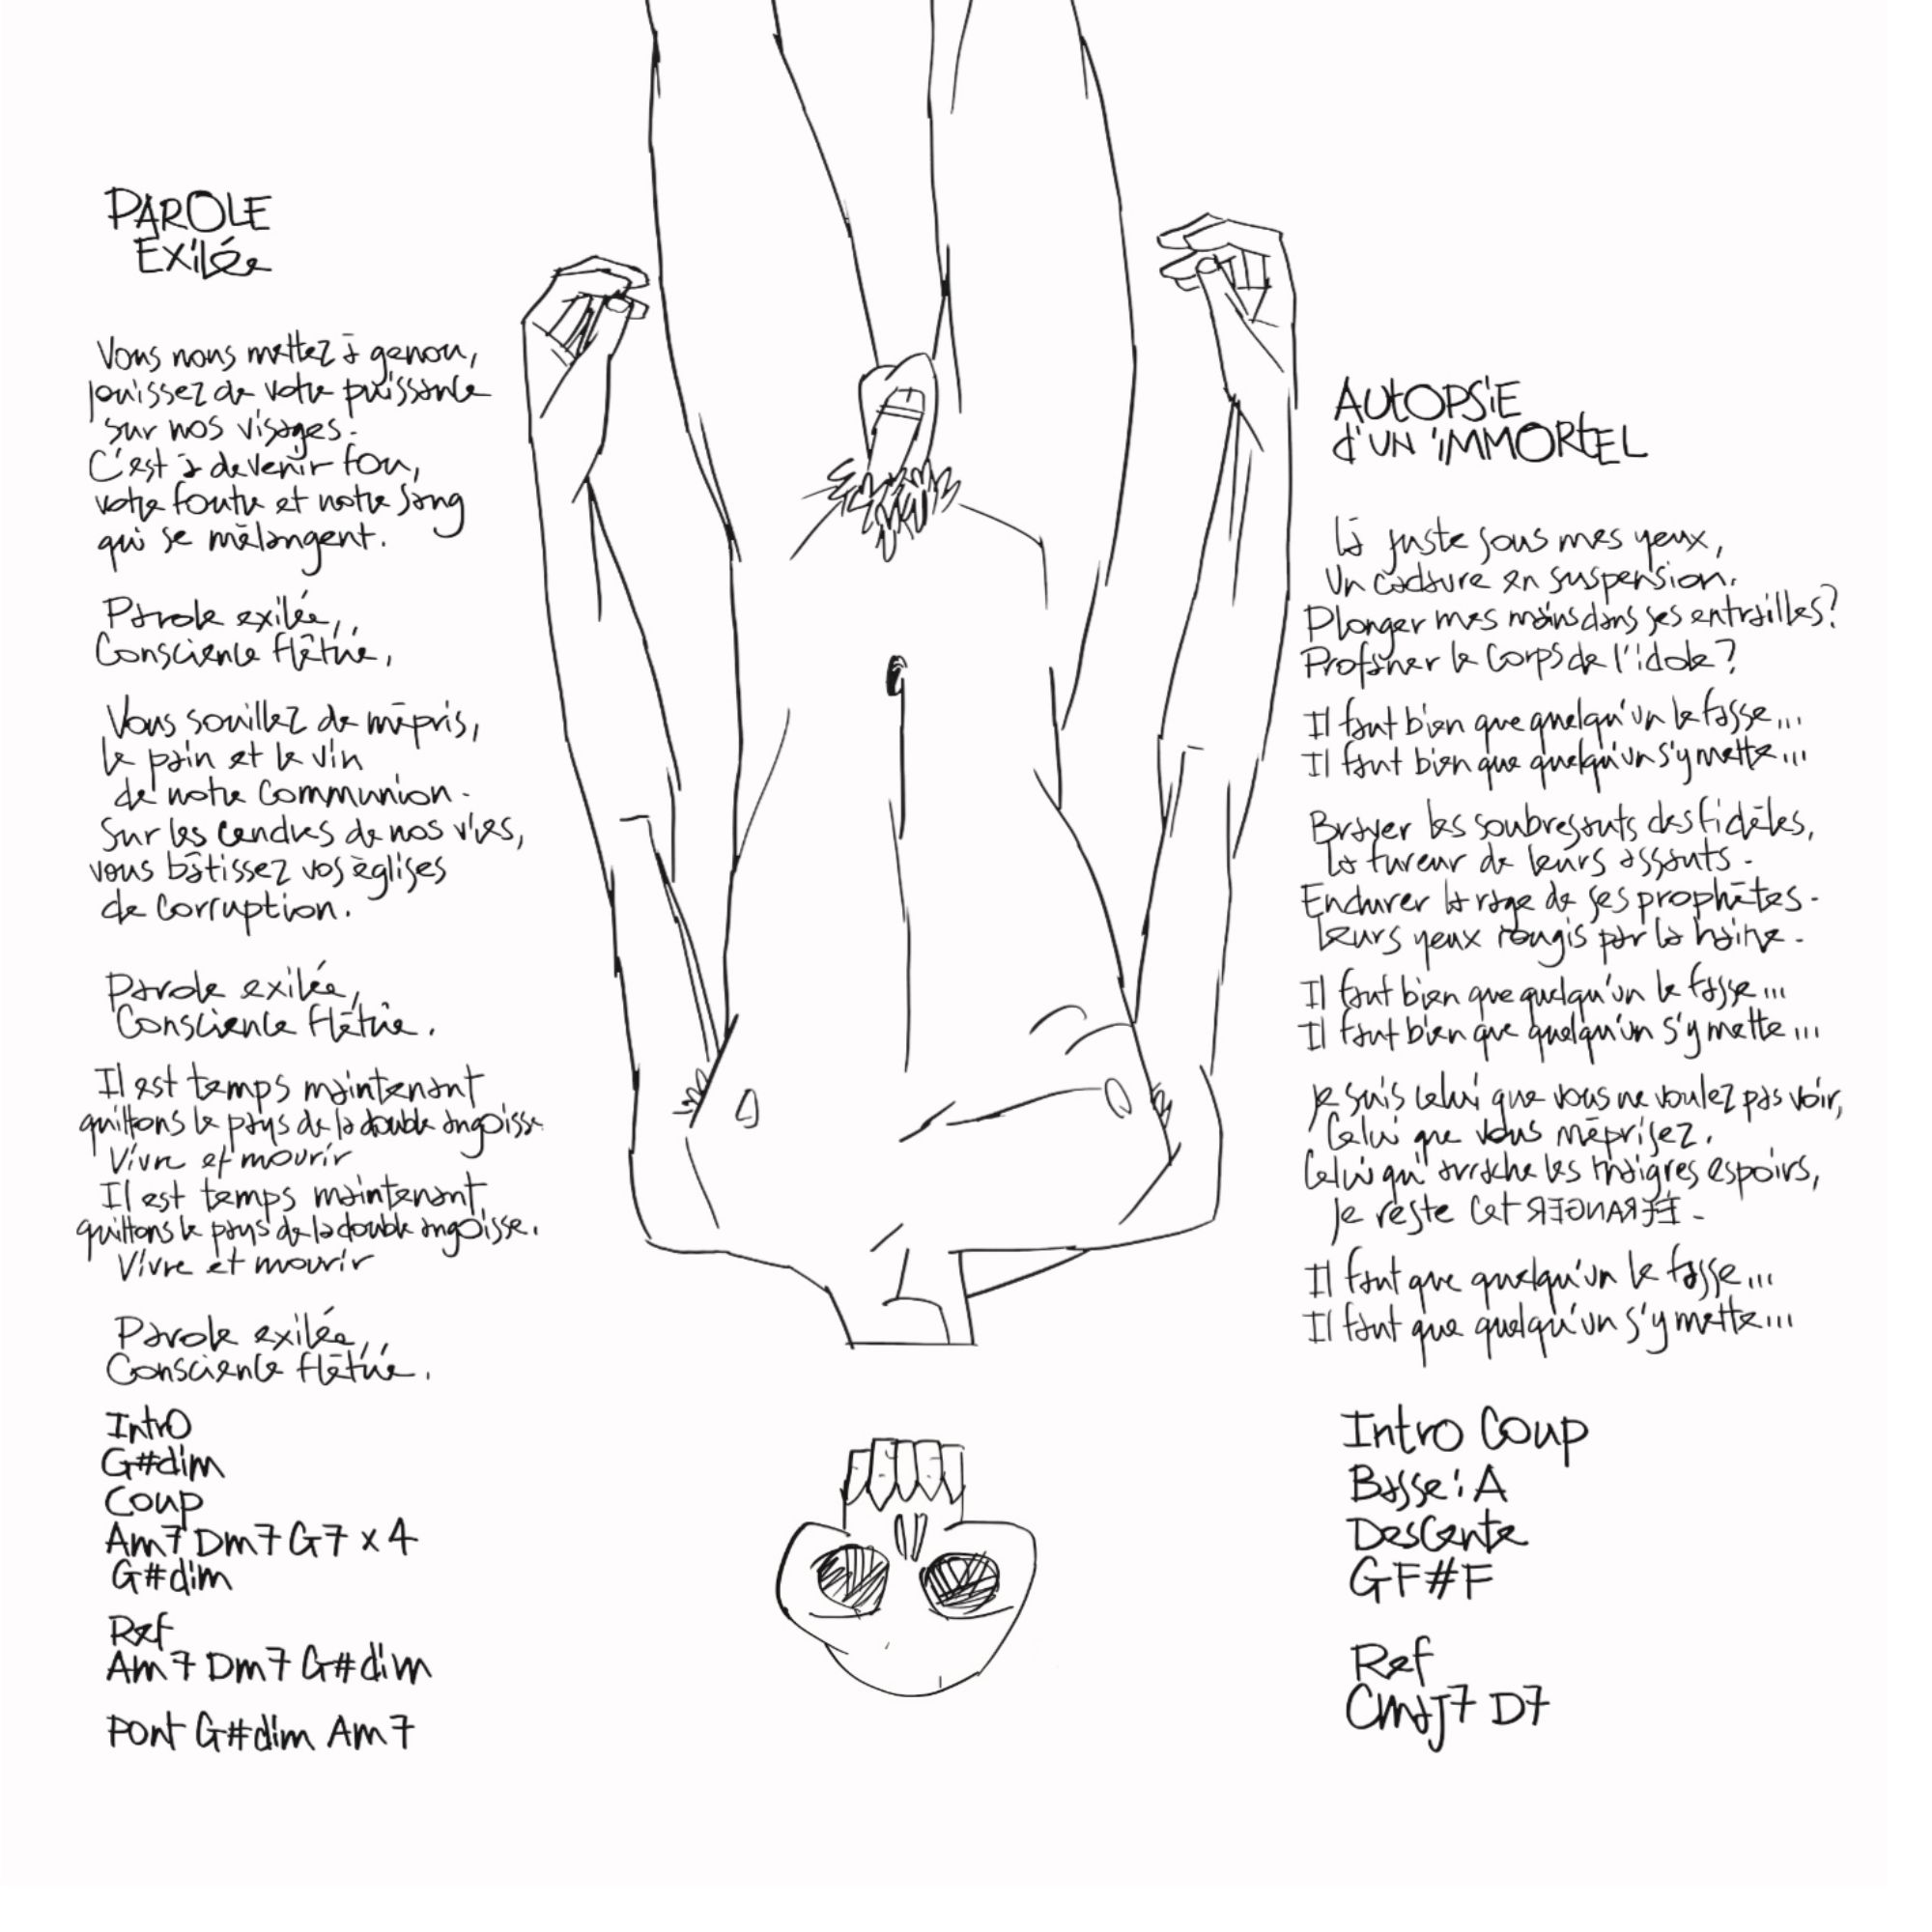 PAROLE
Exilée
Vous nous mettez à genou,
jouissez de votre puissance
sur nos visages.
C'est à devenir fou,
votre foutre et notre sang
qui se mélangent.
Parole exilée,
Conscience flétrie,
Vous souillez de mépris,
le pain et le vin
de notre Communion.
Sur les cendres de nos vies,
vous bâtissez vos églises
de Corruption.
Parole exilée,
Conscience flétrie.
Il est temps maintenant
quittons le pays de la double angoisse
Vivre et mourir
Il est temps maintenant,
quittons le pays de la double angoisse.
Vivre et mourir
Parole exilée,
Conscience flétrie.
Intro
G#dim
Coup
Am7 Dm7 G7 x 4
G#dim
Ref
Am7 Dm7 G#dim
Pont G#dim Am7
AUTOPSIE
d'UN IMMORTEL
Là juste sous mes yeux,
Un cadavre en suspension.
Plonger mes mains dans ses entrailles?
Profaner le Corps de l'idole?
Il faut bien que quelqu'un le fasse...
Il faut bien que quelqu'un s'y mette...
Brayer les soubressauts des fidèles,
la fureur de leurs assauts.
Endurer la rage de ses prophètes.
leurs yeux rougis par la haine.
Il faut bien que quelqu'un le fasse...
Il faut bien que quelqu'un s'y mette...
je suis celui que vous ne voulez pas voir,
Celui que vous méprisez.
Celui qu' arrache les maigres espoirs,
je reste cet ETRANGER.
Il faut que quelqu'un le fasse...
Il faut que quelqu'un s'y mette...
Intro Coup
Basse: A
Descente
G F# F
Ref
Cmaj7 D7